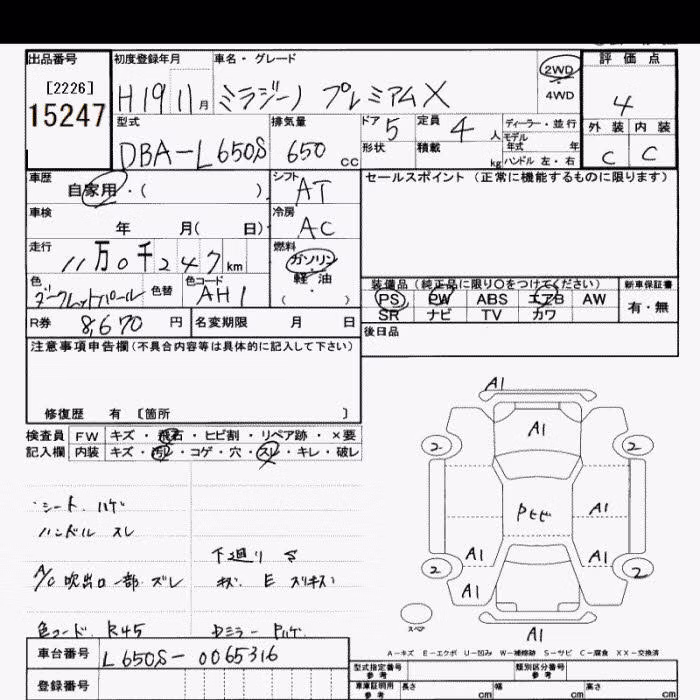 出品番号 初度登録年月 車名・グレード 評価点
[2226] 2WD
15247 H19 11月 ミラジーノ プレミアムX 4WD 4
型式 排気量 ドア 5 定員 4 人 ディーラー・並行 外装 内装
モデル年式 年
DBA-L650S 650 cc 形状 積載 kg ハンドル 左・右 C C
車歴 自家用・( ) シフト AT セールスポイント (正常に機能するものに限ります)
車検 年 月( 日) 冷房 AC
走行 11万0千247km 燃料 ガソリン
軽油
( )
色 色替 色コード AH1 装備品 (純正品に限り○をつけてください) 新車保証書
PS PW ABS エアB AW 有・無
SR ナビ TV カワ
R券 8,670 円 名変期限 月 日 後日品
注意事項申告欄 (不具合内容等は具体的に記入して下さい)
修復歴 有 [箇所 ]
検査員 FW キズ・飛石・ヒビ割・リペア跡・×要
記入欄 内装 キズ・汚れ・コゲ・穴・スレ・キレ・破レ
A1
A1
2 2
シート ハゲ
ハンドル スレ
Pヒビ A1
下廻り S
A1 A1
A/C 吹出口一部 ズレ キズ E スリキズ
2 2
A1
色コード R45 Dミラー Pハゲ
スペア
A1
A-キズ E-エクボ U-凹み W-補修跡 S-サビ C-腐食 XX-交換済
車台番号 L650S-0065316
型式指定番号 参考 類別区分番号 参考
登録番号 車庫証明用 参考 長さ cm 幅 cm 高さ cm